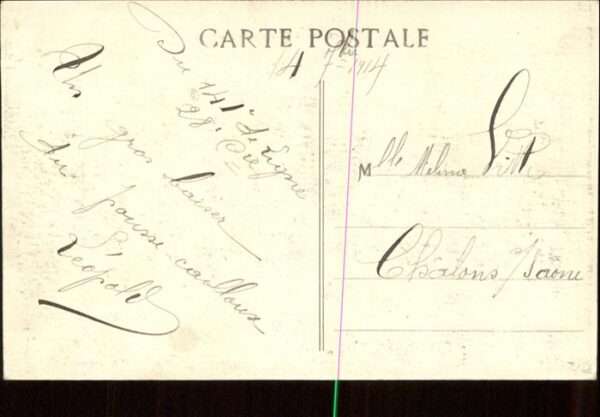 CARTE POSTALE
14 7bre 1914
Du 141e de Ligne
28e Cie
Un gros baiser
du pousse cailloux
Léopold
Mlle Melina
Châlons s/Saône